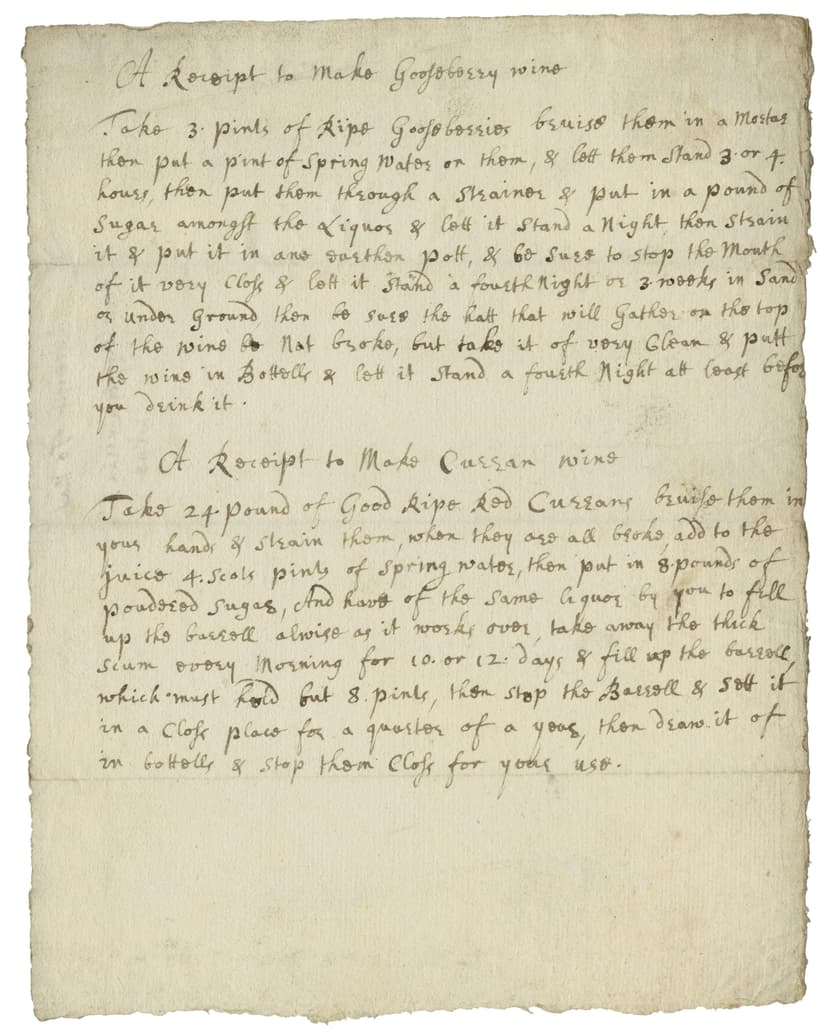 A Receipt to Make Gooseberry wine
Take 3. pints of Ripe Gooseberries bruise them in a Mortar
then put a pint of Spring Water on them, & lett them Stand 3. or 4.
hours, then put them through a Strainer & put in a pound of
Sugar amongst the Liquor & lett it Stand a Night, then Strain
it & put it in ane earthen pott, & be Sure to stop the Mouth
of it very Closs & lett it Stand a fourth Night or 3. weeks in Sand
or under Ground, then be sure the hatt that will Gather on the top
of the wine be Nat broke, but take it of very Clean & putt
the wine in Bottells & lett it Stand a fourth Night att least befor
you drink it.
A Receipt to Make Curran wine
Take 24. pound of Good Ripe Red Currans bruise them in
your hands & strain them, when they are all broke, add to the
juice 4. Scots pints of Spring water, then put in 8. pounds of
poudered Sugar, And have of the same liquor by you to fill
up the barrell alwise as it works over, take away the thick
Scum every Morning for 10. or 12. days & fill up the barrell,
which must hold but 8. pints, then stop the Barrell & Sett it
in a Closs place for a quarter of a year, then draw it of
in bottells & stop them Closs for your use.